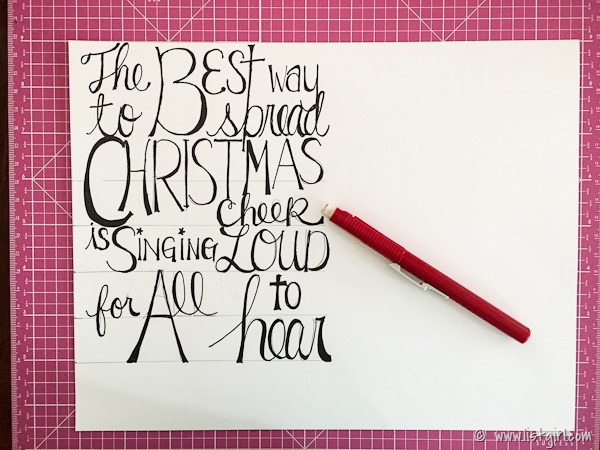 The BEST way
to spread
CHRISTMAS
cheer
is SINGING LOUD
for All to
hear
© www.listgirl.com